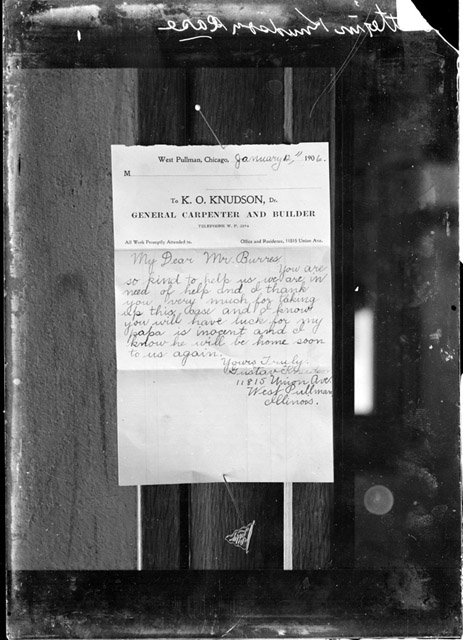 Letter in Knudson Case
West Pullman, Chicago, January 2, 1906.
M
To K. O. KNUDSON, Dr.
GENERAL CARPENTER AND BUILDER
TELEPHONE W. P.
All Work Promptly Attended to. Office and Residence, 11815 Union Ave.
My Dear Mr. Burres
You are
so kind to help us we are in
need of help and I thank
you very much for taking
up this case and I know
you will have luck for my
papa is inocent and I
know he will be home soon
to us again.
Yours Truly.
Gustav
11815 Union Ave.
West Pullman
Illinois.